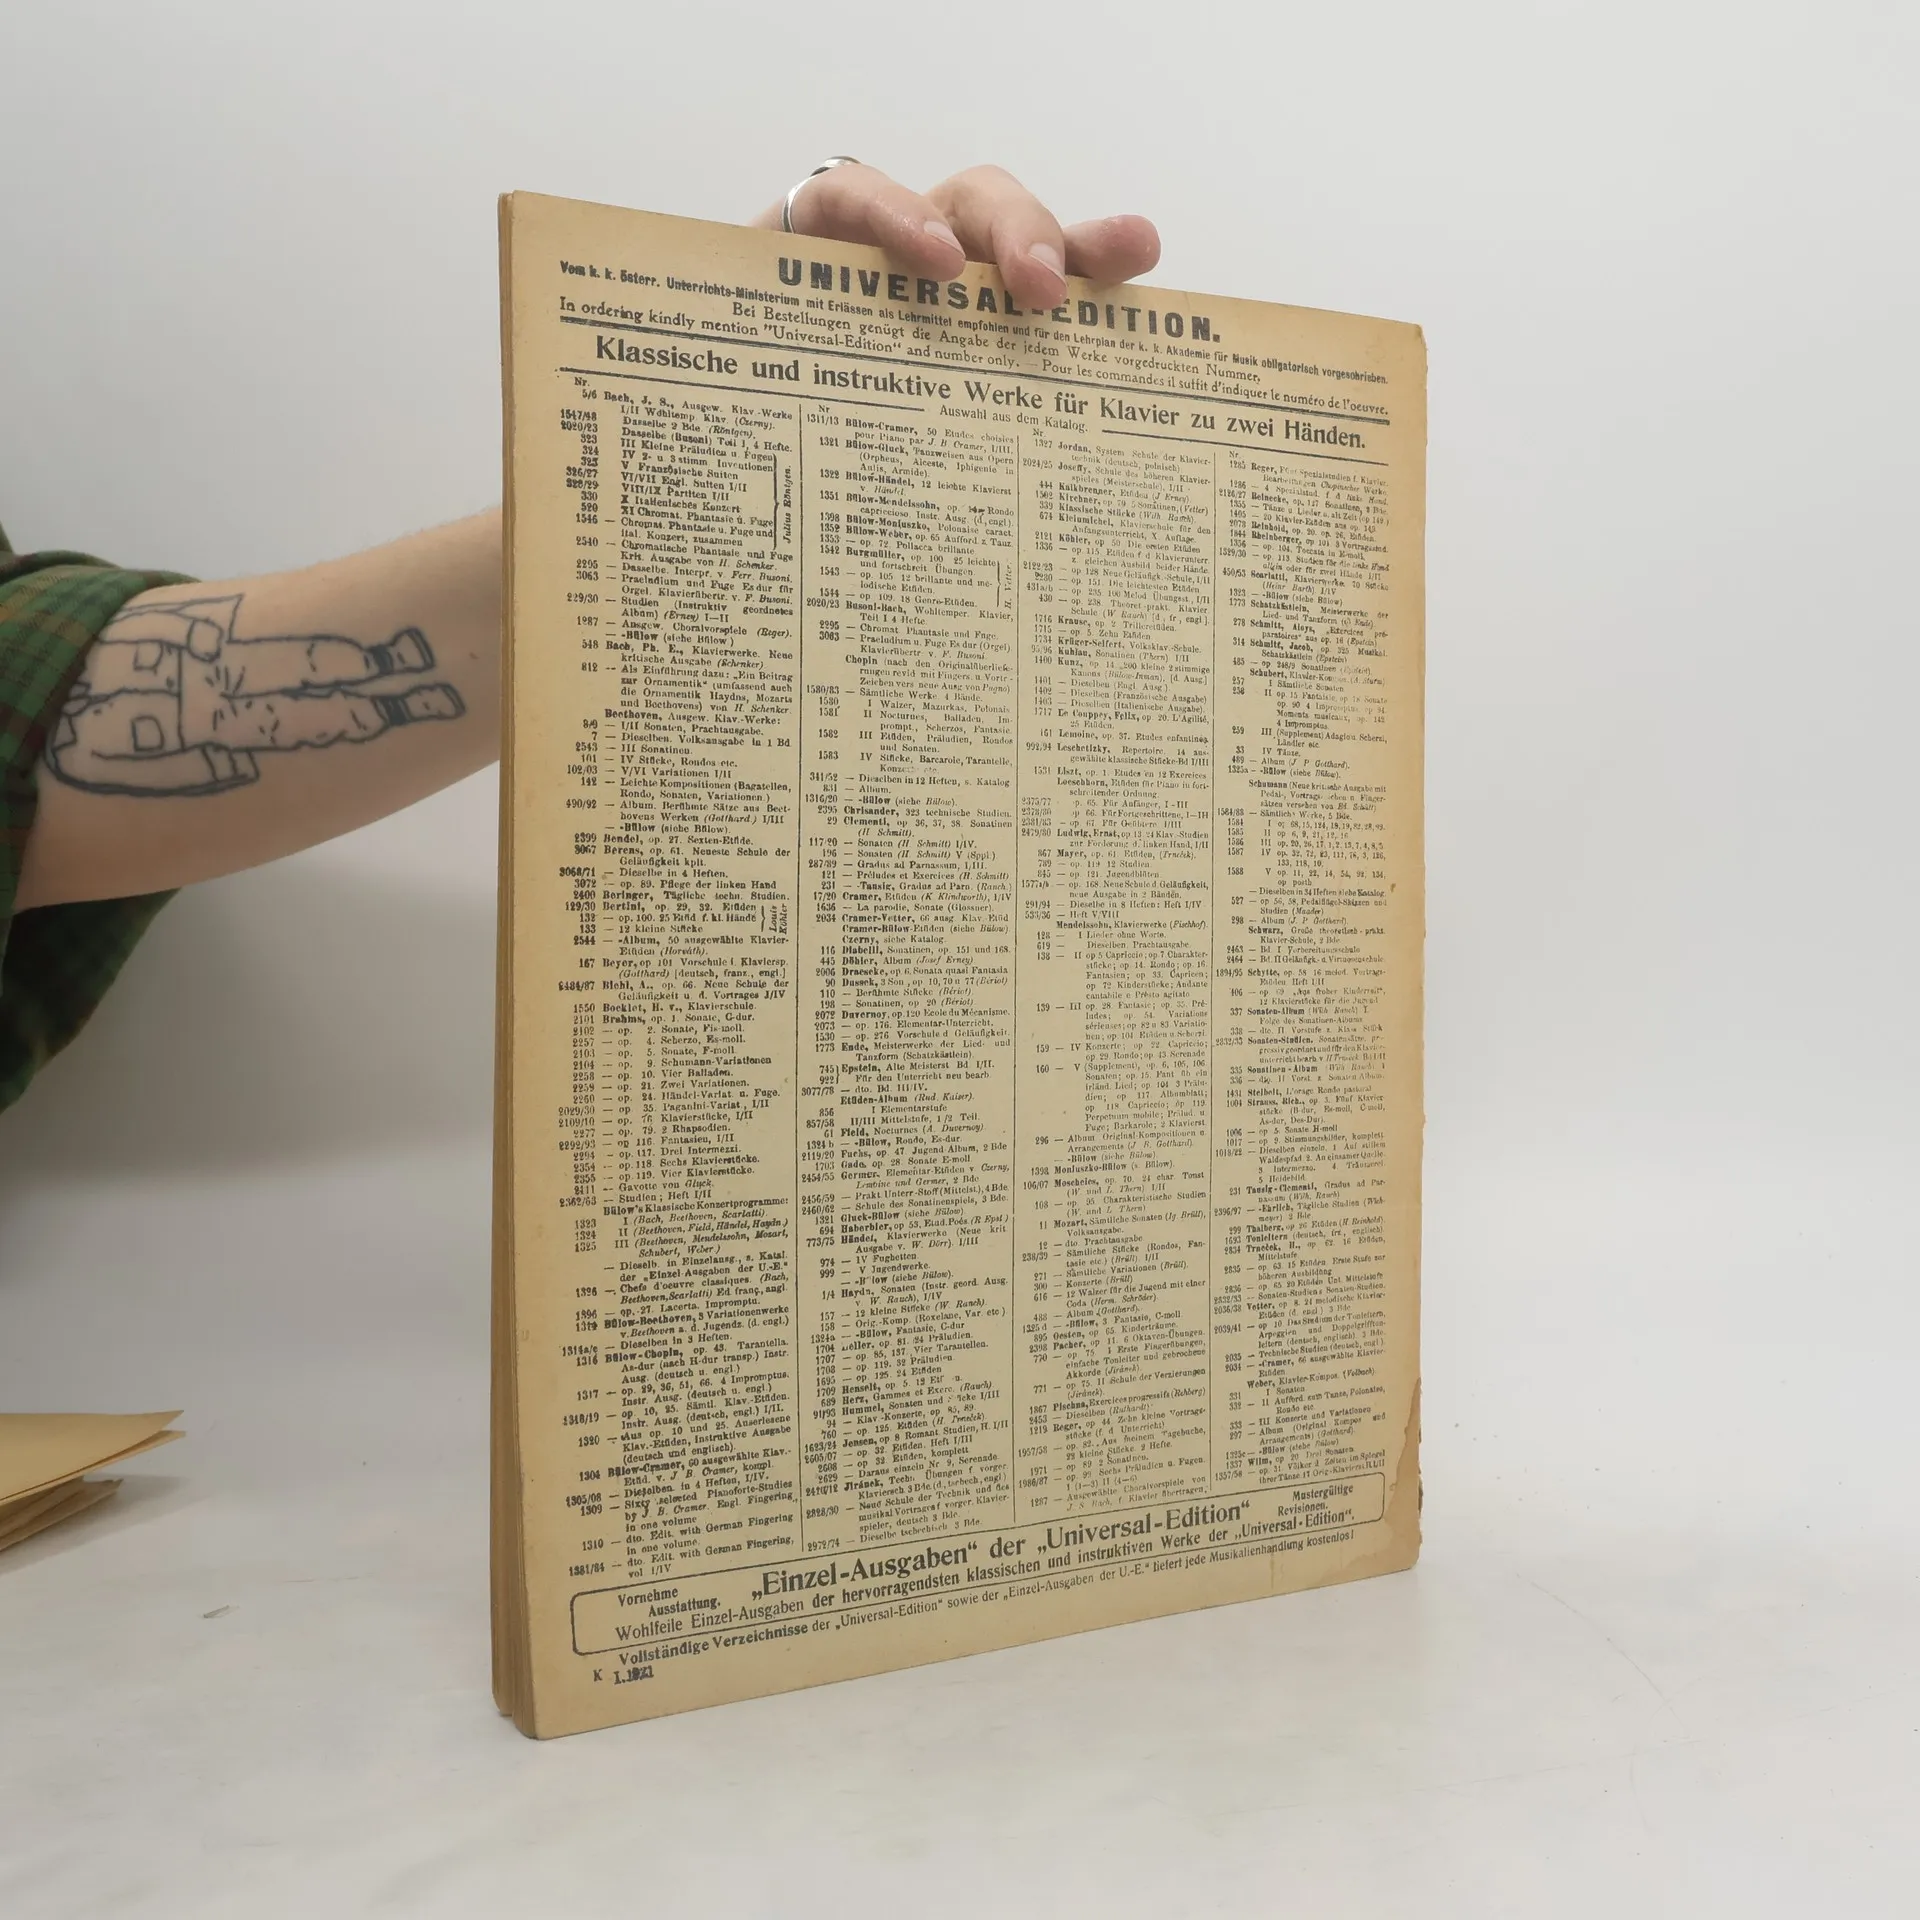 UNIVERSAL-EDITION.
Vom k. k. österr. Unterrichts-Ministerium mit Erlässen als Lehrmittel empfohlen und für den Lehrplan der k. k. Akademie für Musik obligatorisch vorgeschrieben.
Bei Bestellungen genügt die Angabe der jedem Werke vorgedruckten Nummer.
In ordering kindly mention "Universal-Edition" and number only. — Pour les commandes il suffit d'indiquer le numéro de l'oeuvre.
Klassische und instruktive Werke für Klavier zu zwei Händen.
Auswahl aus dem Katalog.
Nr.
5/6 Bach, J. S., Ausgew. Klav.-Werke
I/II Wohltemp. Klav. (Czerny).
1547/48 Dasselbe 2 Bde. (Röntgen).
2020/23 Dasselbe (Busoni) Teil 1, 4 Hefte.
323 III Kleine Präludien u. Fugen
324 IV 2- u. 3 stimm. Inventionen
325 V Französische Suiten
326/27 VI/VII Engl. Suiten I/II
328/29 VIII/IX Partiten I/II
330 X Italienisches Konzert
520 XI Chromat. Phantasie u. Fuge
Julius Röntgen.
1546 — Chromat. Phantasie u. Fuge und
ital. Konzert, zusammen
2540 — Chromatische Phantasie und Fuge
Krit. Ausgabe von H. Schenker.
2295 — Dasselbe. Interpr. v. Ferr. Busoni.
3063 — Praeludium und Fuge Es dur für
Orgel. Klavierübertr. v. F. Busoni.
229/30 — Studien (Instruktiv geordnetes
Album) (Erney) I—II
1287 — Ausgew. Choralvorspiele (Reger).
— -Bülow (siehe Bülow.)
548 Bach, Ph. E., Klavierwerke. Neue
kritische Ausgabe (Schenker)
812 — Als Einführung dazu: „Ein Beitrag
zur Ornamentik" (umfassend auch
die Ornamentik Haydns, Mozarts
und Beethovens) von H. Schenker.
Beethoven, Ausgew. Klav.-Werke:
8/9 — I/II Sonaten, Prachtausgabe.
7 — Dieselben. Volksausgabe in 1 Bd
2543 — III Sonatinen.
101 — IV Stücke, Rondos etc.
102/03 — V/VI Variationen I/II
142 — Leichte Kompositionen (Bagatellen,
Rondo, Sonaten, Variationen.)
490/92 — Album. Berühmte Sätze aus Beet-
hovens Werken (Gotthard.) I/III
— -Bülow (siehe Bülow).
2399 Bendel, op. 27. Sexten-Etüde.
3067 Berens, op. 61. Neueste Schule der
Geläufigkeit kplt.
3068/71 — Dieselbe in 4 Heften.
3072 — op. 89. Pflege der linken Hand
2400 Beringer, Tägliche techn. Studien.
129/30 Bertini, op. 29, 32. Etüden
132 — op. 100. 25 Etüd f. kl. Hände
133 — 12 kleine Stücke
Louis Köhler
2544 — -Album, 50 ausgewählte Klavier-
Etüden (Horváth).
167 Beyer, op. 101 Vorschule i. Klaviersp.
(Gotthard) [deutsch, franz., engl.]
2484/87 Biehl, A., op. 66. Neue Schule der
Geläufigkeit u. d. Vortrages I/IV
1550 Bocklet, H. v., Klavierschule.
2101 Brahms, op. 1. Sonate, C-dur.
2102 — op. 2. Sonate, Fis-moll.
2257 — op. 4. Scherzo, Es-moll.
2103 — op. 5. Sonate, F-moll.
2104 — op. 9. Schumann-Variationen
2258 — op. 10. Vier Balladen.
2259 — op. 21. Zwei Variationen.
2260 — op. 24. Händel-Variat. u. Fuge.
2029/30 — op. 35. Paganini-Variat., I/II
2109/10 — op. 76 Klavierstücke, I/II
2277 — op. 79. 2 Rhapsodien.
2292/93 — op 116. Fantasien, I/II
2294 — op. 117. Drei Intermezzi.
2354 — op. 118. Sechs Klavierstücke.
2355 — op. 119. Vier Klavierstücke.
2111 — Gavotte von Gluck.
2362/63 — Studien; Heft I/II
Bülow's Klassische Konzertprogramme:
1323 I (Bach, Beethoven, Scarlatti).
1324 II (Beethoven, Field, Händel, Haydn.)
1325 III (Beethoven, Mendelssohn, Mozart,
Schubert, Weber)
— Dieselb. in Einzelausg., s. Katal.
der „Einzel-Ausgaben der U.-E."
1326 — Chefs d'oeuvre classiques. (Bach,
Beethoven, Scarlatti) Ed franç., angl.
1896 — op. 27. Lacerta. Impromptu.
1314 Bülow-Beethoven, 3 Variationenwerke
v. Beethoven a. d. Jugendz. (d. engl.)
1314a/c — Dieselben in 3 Heften.
1316 Bülow-Chopin, op. 43. Tarantella.
As-dur (nach H-dur transp.) Instr.
Ausg. (deutsch u. engl.)
1317 — op. 29, 36, 51, 66. 4 Impromptus.
Instr. Ausg. (deutsch u. engl.)
1318/19 — op. 10, 25. Sämtl. Klav.-Etüden.
Instr. Ausg. (deutsch, engl.) I/II.
1320 — Aus op. 10 und 25. Auserlesene
Klav.-Etüden, Instruktive Ausgabe
(deutsch und englisch).
1304 Bülow-Cramer, 60 ausgewählte Klav.-
Etüd. v. J. B. Cramer, kompl.
1305/08 — Dieselben in 4 Heften, I/IV.
1309 — Sixty selected Pianoforte-Studies
by J. B. Cramer. Engl. Fingering,
in one volume
1310 — dto. Edit. with German Fingering
in one volume.
1381/84 — dto. Edit. with German Fingering,
vol I/IV
Nr
1311/13 Bülow-Cramer, 50 Etudes choisies
pour Piano par J. B. Cramer, I/III.
1321 Bülow-Gluck, Tanzweisen aus Opern
(Orpheus, Alceste, Iphigenie in
Aulis, Armide).
1322 Bülow-Händel, 12 leichte Klavierst
v. Händel.
1351 Bülow-Mendelssohn, op. 14. Rondo
capriccioso. Instr. Ausg. (d., engl.).
1398 Bülow-Moniuszko, Polonaise caract.
1352 Bülow-Weber, op. 65 Aufford z. Tanz.
1353 — op. 72. Pollacca brillante
1542 Burgmüller, op. 100 25 leichte
und fortschreit Übungen
1543 — op. 105 12 brillante und me-
lodische Etüden.
1544 — op. 109. 18 Genre-Etüden.
H. Vetter.
2020/23 Busoni-Bach, Wohltemper. Klavier,
Teil 1 4 Hefte.
2295 — Chromat Phantasie und Fuge.
3063 — Praeludium u. Fuge Es dur (Orgel)
Klavierübertr v. F. Busoni.
Chopin (nach den Originalüberliefe-
rungen revid mit Fingers. u. Vortr-
Zeichen vers neue Ausg von Pugno)
1580/83 — Sämtliche Werke 4 Bände.
1580 I Walzer, Mazurkas, Polonais.
1581 II Nocturnes, Balladen, Im-
prompt., Scherzos, Fantasie.
1582 III Etüden, Präludien, Rondos
und Sonaten.
1583 IV Stücke, Barcarole, Tarantelle,
341/52 — Dieselben in 12 Heften, s. Katalog
831 — Album.
1316/20 — -Bülow (siehe Bülow).
2395 Chrisander, 323 technische Studien.
29 Clementi, op 36, 37, 38. Sonatinen
(H Schmitt).
117/20 — Sonaten (H Schmitt) I/IV.
196 — Sonaten (H Schmitt) V (Sppl.)
287/89 — Gradus ad Parnassum, I/III.
121 — Préludes et Exercices (H. Schmitt)
231 — -Tausig, Gradus ad Parn. (Rauch.)
17/20 Cramer, Etüden (K Klindworth), I/IV
1636 — La parodie, Sonate (Glossner).
2034 Cramer-Vetter, 66 ausg Klav.-Etüd
Cramer-Bülow-Etüden (siehe Bülow)
Czerny, siehe Katalog.
116 Diabelli, Sonatinen, op. 151 und 168.
445 Döhler, Album (Josef Erney)
2006 Draeseke, op. 6, Sonata quasi Fantasia
90 Dussek, 3 Son., op 10, 70 u 77 (Bériot)
110 — Berühmte Stücke (Bériot)
198 — Sonatinen, op 20 (Bériot)
2072 Duvernoy, op. 120 Ecole du Mécanisme.
2073 — op. 176. Elementar-Unterricht.
1530 — op. 276 Vorschule d Geläufigkeit.
1773 Ende, Meisterwerke der Lied- und
Tanzform (Schatzkästlein).
745 922 Epstein, Alte Meisterst Bd I/II.
Für den Unterricht neu bearb.
3077/78 — dto. Bd. III/IV.
Etüden-Album (Rud. Kaiser).
856 I Elementarstufe
857/58 II/III Mittelstufe, 1/2 Teil.
61 Field, Nocturnes (A. Duvernoy).
1324 b — -Bülow, Rondo, Es-dur.
2119/20 Fuchs, op. 47. Jugend-Album, 2 Bde
1703 Gade, op. 28. Sonate E-moll.
2454/55 Germer, Elementar-Etüden v Czerny,
Lemoine und Germer, 2 Bde
2456/59 — Prakt Unterr-Stoff (Mittelst.), 4 Bde.
2460/62 — Schule des Sonatinenspiels, 3 Bde.
1321 Gluck-Bülow (siehe Bülow)
694 Haberbier, op 53, Etud. Poés. (R Epst.)
773/75 Händel, Klavierwerke (Neue krit
Ausgabe v. W. Dörr). I/III
974 — IV Fughetten
999 — V Jugendwerke.
— -Bülow (siehe Bülow).
1/4 Haydn, Sonaten (Instr. geord. Ausg.
v W. Rauch), I/IV
157 — 12 kleine Stücke (W Ranch).
158 — Orig.-Komp. (Roxelane, Var. etc)
1324a — -Bülow, Fantasie, C-dur
1704 Heller, op. 81. 24 Präludien.
1707 — op 85, 137, Vier Tarantellen.
1708 — op. 119. 32 Präludien
1695 — op. 125. 24 Etüden
1709 Henselt, op. 5. 12
689 Herz, Gammes et Exerc. (Rauch)
91/93 Hummel, Sonaten und Stücke I/III
94 — Klav-Konzerte, op 85, 89.
760 — op. 125. Etüden (H. Trneček).
1623/24 Jensen, op 8 Romant. Studien, H. I/II
2605/07 — op 32. Etüden. Heft I/III
2608 — op 32 Etüden, komplett
2629 — Daraus einzeln Nr 9, Serenade
2410/12 Jiránek, Techn Übungen f vorger.
Klaviersch 3 Bde. (d., tschech., engl)
2828/30 — Neue Schule der Technik und des
musikal Vortrages f vorger. Klavier-
spieler, deutsch 3 Bde.
2972/74 — Dieselbe tschechisch 3 Bde.
Nr.
1327 Jordan, System Schule der Klavier-
technik (deutsch, polnisch)
2024/25 Joseffy, Schule des höheren Klavier-
spieles (Meisterschule), I/II
444 Kalkbrenner, Etüden (J Erney)
1502 Kirchner, op 70. 5 Sonatinen, (Vetter)
339 Klassische Stücke (Wilh Rauch).
674 Kleinmichel, Klavierschule für den
Anfangsunterricht, X. Auflage.
2121 Köhler, op 50 Die ersten Etüden
1336 — op 115. Etüden f d Klavierunterr.
z. gleichen Ausbild beider Hände.
2122/23 — op 128 Neue Geläufigk-Schule, I/II
2280 — op. 151. Die leichtesten Etüden
431a/b — op 235. 100 Melod Übungest., I/II
430 — op. 238. Theoret-prakt. Klavier
Schule (W Rauch) [d, fr, engl]
1716 Krause, op 2 Trilleretüden.
1715 — op 5. Zehn Etüden
1731 Krüger-Seifert, Volksklav-Schule.
95/96 Kuhlau, Sonatinen (Thern) I/II
1400 Kunz, op 14 „200 kleine 2 stimmige
Kanons (Bülow-Inman), [d. Ausg]
1401 — Dieselben (Engl. Ausg.)
1402 — Dieselben (Französische Ausgabe)
1403 — Dieselben (Italienische Ausgabe).
1717 Le Couppey, Felix, op 20. L'Agilité,
25 Etüden.
161 Lemoine, op 37. Etudes enfantines
992/94 Leschetizky, Repertoire. 14 aus-
gewählte klassische Stücke-Bd I/III
1531 Liszt, op. 1. Etudes en 12 Exercices
Loeschhorn, Etüden für Piano in fort-
schreitender Ordnung.
2375/77 op. 65. Für Anfänger, I–III
2378/80 op 66. Für Fortgeschrittene, I–III
2381/83 — op 67. Für Geübtere I/III
2479/80 Ludwig, Ernst, op 13 24 Klav-Studien
zur Förderung d linken Hand, I/II
867 Mayer, op 61 Etüden, (Trneček).
789 — op 119 12 Studien.
845 — op 121 Jugendblüten
1577a/b — op 168. Neue Schule d. Geläufigkeit,
neue Ausgabe in 2 Bänden.
291/94 — Dieselbe in 8 Heften: Heft I/IV
533/36 — Heft V/VIII
Mendelssohn, Klavierwerke (Fischhof).
128 — I Lieder ohne Worte.
619 — Dieselben Prachtausgabe.
138 — II op 5 Capriccio; op 7 Charakter-
stücke; op 14. Rondo; op 16.
Fantasien; op 33. Capricen;
op 72 Kinderstücke; Andante
cantabile e Presto agitato
139 — III op. 28. Fantasie; op. 35. Prä-
ludes; op 54. Variations
sérieuses; op 82 u 83 Variatio-
nen; op 104 Etüden u Scherzi.
159 — IV Konzerte; op 22 Capriccio;
op 29. Rondo; op 43 Serenade
160 — V (Supplement), op 6, 105, 106
Sonaten; op 15 Fant üb ein
irländ. Lied; op 104 3 Prälu-
dien; op 117 Albumblatt;
op 118 Capriccio; op 119
Perpetuum mobile; Prälud. u
Fuge; Barkarole; 2 Klavierst
296 — Album Original-Kompositionen u
Arrangements (J B. Gotthard).
— -Bülow (siehe Bülow).
1398 Moniuszko-Bülow (s. Bülow).
106/07 Moscheles, op 70. 24 char Tonst
(W. und L Thern) I/II
108 — op 95. Charakteristische Studien
(W. und L Thern)
11 Mozart, Sämtliche Sonaten (Ig Brüll),
Volksausgabe.
12 — dto Prachtausgabe
238/39 — Sämtliche Stücke (Rondos, Fan-
tasie etc) (Brüll). I/II
271 — Sämtliche Variationen (Brüll).
300 — Konzerte (Brüll)
616 — 12 Walzer für die Jugend mit einer
Coda (Herm. Schröder)
488 — Album (Gotthard).
1325 d — -Bülow, 3 Fantasie, C-moll.
895 Oesten, op 65 Kinderträume.
2398 Pacher, op 11. 6 Oktaven-Übungen.
770 — op 75 I Erste Fingerübungen,
einfache Tonleiter und gebrochene
Akkorde (Jiránek)
771 — op 75. II Schule der Verzierungen
(Jiránek).
1867 Pischna, Exercices progressifs (Rehberg)
2453 — Dieselben (Ruthardt)
1219 Reger, op 44 Zehn kleine Vortrags-
stücke (f d Unterricht)
1957/58 — op. 82. Aus meinem Tagebuche,
22 kleine Stücke. 2 Hefte.
1971 — op 89 2 Sonatinen.
1986/87 — op. 99 Sechs Präludien u. Fugen.
I (1—3) II (4—6)
1287 — Ausgewählte Choralvorspiele von
J. S. Bach, f. Klavier übertragen.
Nr.
1285 Reger, Fünf Spezialstudien f. Klavier.
Bearbeitungen Chopinscher Werke.
1286 — 4 Spezialstud. f d linke Hand.
2126/27 Reinecke, op. 127 Sonatinen, 2 Bde.
1355 — Tänze u Lieder u. alt Zeit (op 149)
1405 — 20 Klavier-Etüden aus op. 149.
2078 Reinhold, op 20. op 26, Etüden.
1844 Rheinberger, op 101 3 Vortragsstud.
1356 — op. 104. Toccata in E-moll.
1329/30 — op. 113. Studien für die linke Hand
allein oder für zwei Hände I/II
450/53 Scarlatti, Klavierwerke. 70 Stücke
(Heinr Barth) I/IV
1323 — -Bülow (siehe Bülow)
1773 Schatzkästlein, Meisterwerke der
Lied- und Tanzform (v. Ende).
278 Schmitt, Aloys, „Exercices pré-
paratoires" aus op. 16 (Epstein)
314 Schmitt, Jacob, op 325 Musikal.
Schatzkästlein (Epstein)
485 — op 248/9 Sonatinen (Epstein).
Schubert, Klavier-Kompos (A Sturm).
257 I Sämtliche Sonaten
258 II op 15 Fantaisie, op 78 Sonate
op. 90 4 Impromptus, op 94.
Moments musicaux, op. 142
4 Impromptus
259 III (Supplement) Adagio u Scherzi,
Ländler etc
33 IV Tänze.
489 — Album (J P Gotthard).
1325a — -Bülow (siehe Bülow).
Schumann (Neue kritische Ausgabe mit
Pedal-, Vortrags-
1584/88 — Sämtliche Werke, 5 Bde.
1584
1585 II op 6, 9, 21, 12, 16
1586 III op. 20, 26, 17, 1, 2, 13, 7, 4, 8, 5
1587 IV op. 32, 72, 23, 111, 76, 3, 126,
133, 118, 10.
1588 V op. 11, 22, 14, 54, 92, 134,
op posth
— Dieselben in 34 Heften siehe Katalog
527 — op 56, 58, Pedalflügel-Skizzen und
Studien
298 — Album (J. P Gotthard).
Schwarz, Große theoretisch-prakt.
Klavier-Schule, 2 Bde.
2463 — Bd. I Vorbereitungsschule
2464 — Bd. II Geläufigk- u. Virtuosenschule
1894/95 Schytte, op 58 16 melod. Vortrags-
Etüden Heft I/II
406 — op 69 „Aus froher Kinderzeit",
12 Klavierstücke für die Jugend
337 Sonaten-Album (Wilh Rauch) I.
Folge des Sonatinen-Albums
338 — dto. II Vorstufe z. Klass Stück
2832/33 Sonaten-Studien. Sonatensätze, pr-
335 Sonatinen-Album (Wilh Rauch) I
336 — dto. II Vorst z Sonaten Album.
1431 Steibelt, L'orage Rondo pastoral
1004 Strauss, Rich., op 3. Fünf Klavier
stücke (B-dur, Es-moll, C-moll,
As-dur, Des-Dur).
1006 — op. 5 Sonate H-moll
1017 — op 9 Stimmungsbilder, komplett
1018/22 — Dieselben einzeln. 1 Auf stillem
Waldespfad 2. An einsamer Quelle
3 Intermezzo. 4 Träumerei.
5 Heidebild.
231 Tausig-Clementi, Gradus ad Par-
nassum (Wilh. Rauch)
2396/97 — -Ehrlich, Tägliche Studien
2 Bde
299 Thalberg, op 26 Etüden (H Reinhold).
1693 Tonleitern (deutsch, frz, englisch)
2834 Trneček, H., op 62 16 Etüden,
Mittelstufe
2835 — op 63 15 Etüden. Erste Stufe zur
höheren Ausbildung
2836 — op 65 20 Etüden Unt Mittelstufe
2832/33 — Sonaten-Studien s Sonaten-Studien.
2036/38 Vetter, op 8. 24 melodische Klavier-
Etüden (d. engl) 3 Bde
2039/41 — op 10 Das Studium der Tonleitern,
Arpeggien und Doppelgriffton-
leitern (deutsch, englisch), 3 Bde.
2035 — Technische Studien (deutsch, engl)
2034 — -Cramer, 66 ausgewählte Klavier-
Etüden
Weber, Klavier-Kompos. (Volbach).
331 I Sonaten
332 — II Aufford. zum Tanze, Polonaise,
Rondo etc
333 — III Konzerte und Variationen
297 — Album (Original Kompos und
Arrangements) (Gotthard).
1325c — -Bülow (siehe Bülow)
1337 Wilm, op 20 Drei Sonaten
1357/58 — op. 31 Völker u Zeiten im Spiegel
ihrer Tänze 17 Orig-Klavierst. I/II
Vornehme Ausstattung.
„Einzel-Ausgaben" der „Universal-Edition"
Mustergültige Revisionen.
Wohlfeile Einzel-Ausgaben der hervorragendsten klassischen und instruktiven Werke der „Universal-Edition".
Vollständige Verzeichnisse der „Universal-Edition" sowie der „Einzel-Ausgaben der U.-E." liefert jede Musikalienhandlung kostenlos!
K I.1921